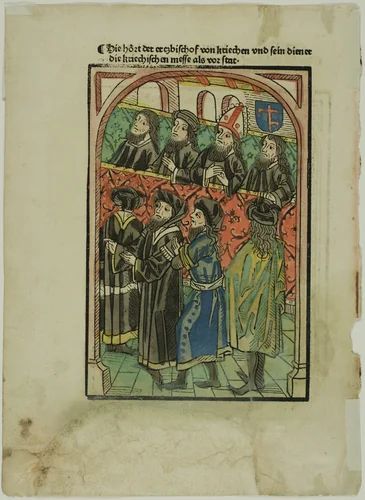 ¶ Hie hört der ertzbischof von kriechen vnd sein diener
die kriechischen messe als vor stat·